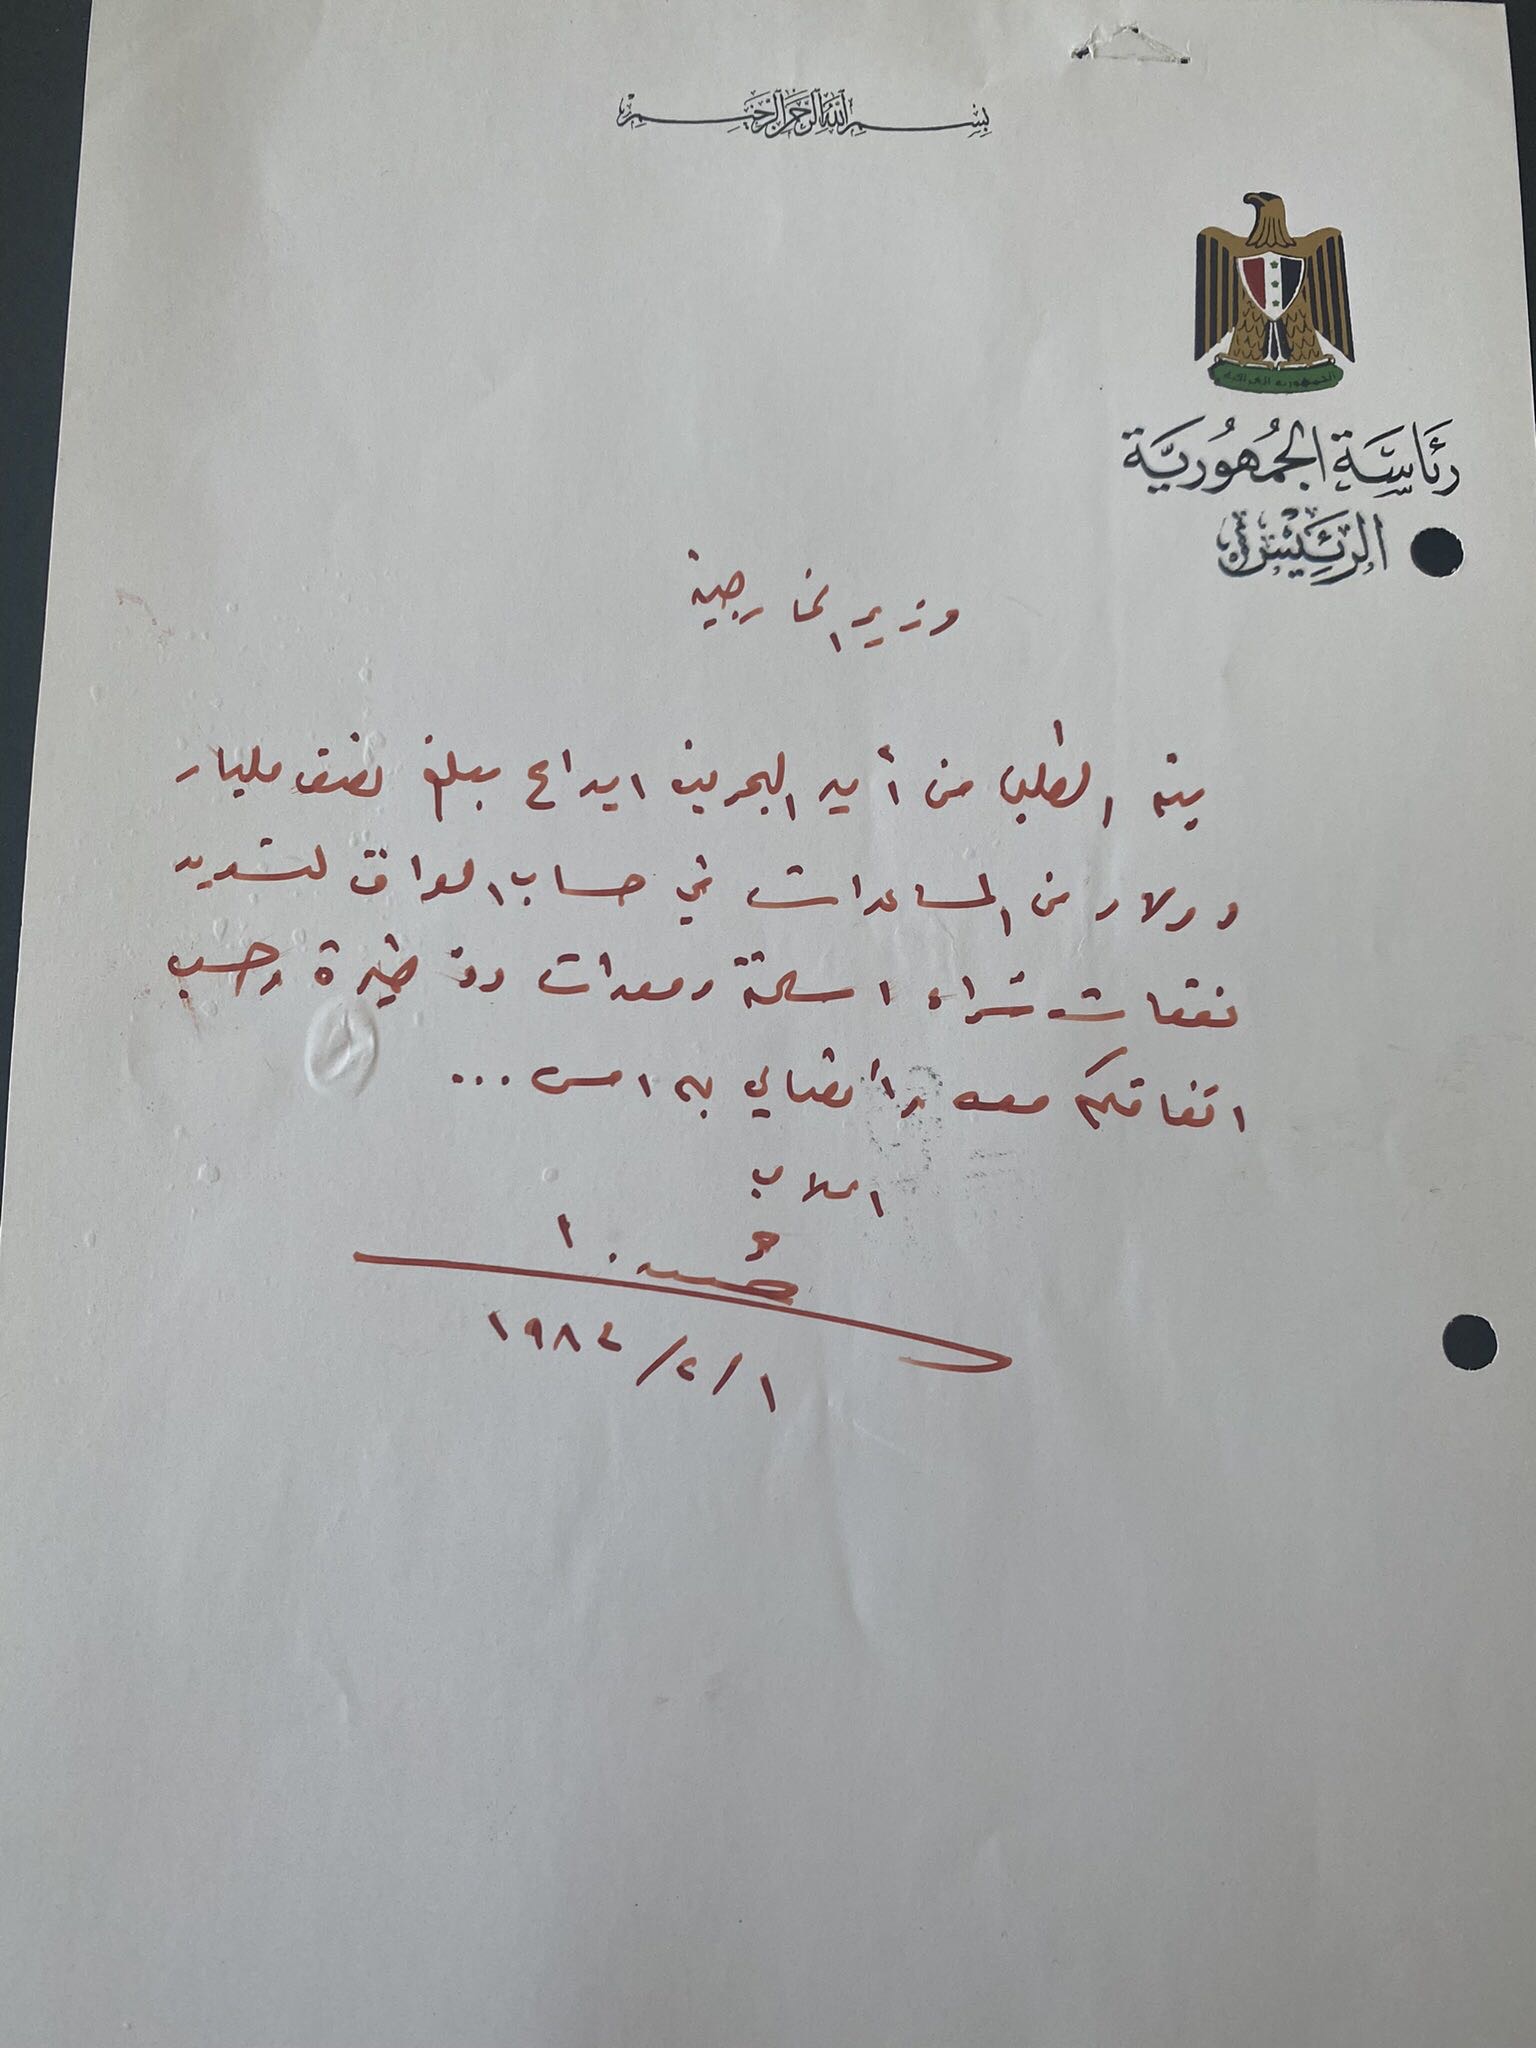 بسم الله الرحمن الرحيم
الجمهورية العراقية
رئاسة الجمهورية
الرئيس
وزير الخارجية
يتم الطلب من أمير البحرين ايداع مبلغ نصف مليار
دولار من المساعدات في حساب العراق لتسديد
نفقات شراء اسلحة ومعدات وذخيرة وحسب
اتفاقكم معه واتصالي به امس ...
١ / ٢ / ١٩٨٤